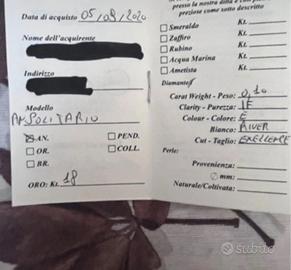 Data di acquisto 05/09/2020
Nome dell'acquirente
Indirizzo
Modello
AN SOLITARIO
AN. PEND.
OR. COLL.
BR.
ORO: Kt. 18
presso la nostra ditta e con
preziose come sotto descritto
Smeraldo Kt.
Zaffiro Kt.
Rubino Kt.
Acqua Marina Kt.
Ametista Kt.
Diamante
Carat Weight - Peso: 0,10
Clarity - Purezza: IF
Colour - Colore: E
Bianco: RIVER
Cut - Taglio: EXELLENCE
Perle:
Provenienza:
Ø mm:
Naturale/Coltivata:
subito